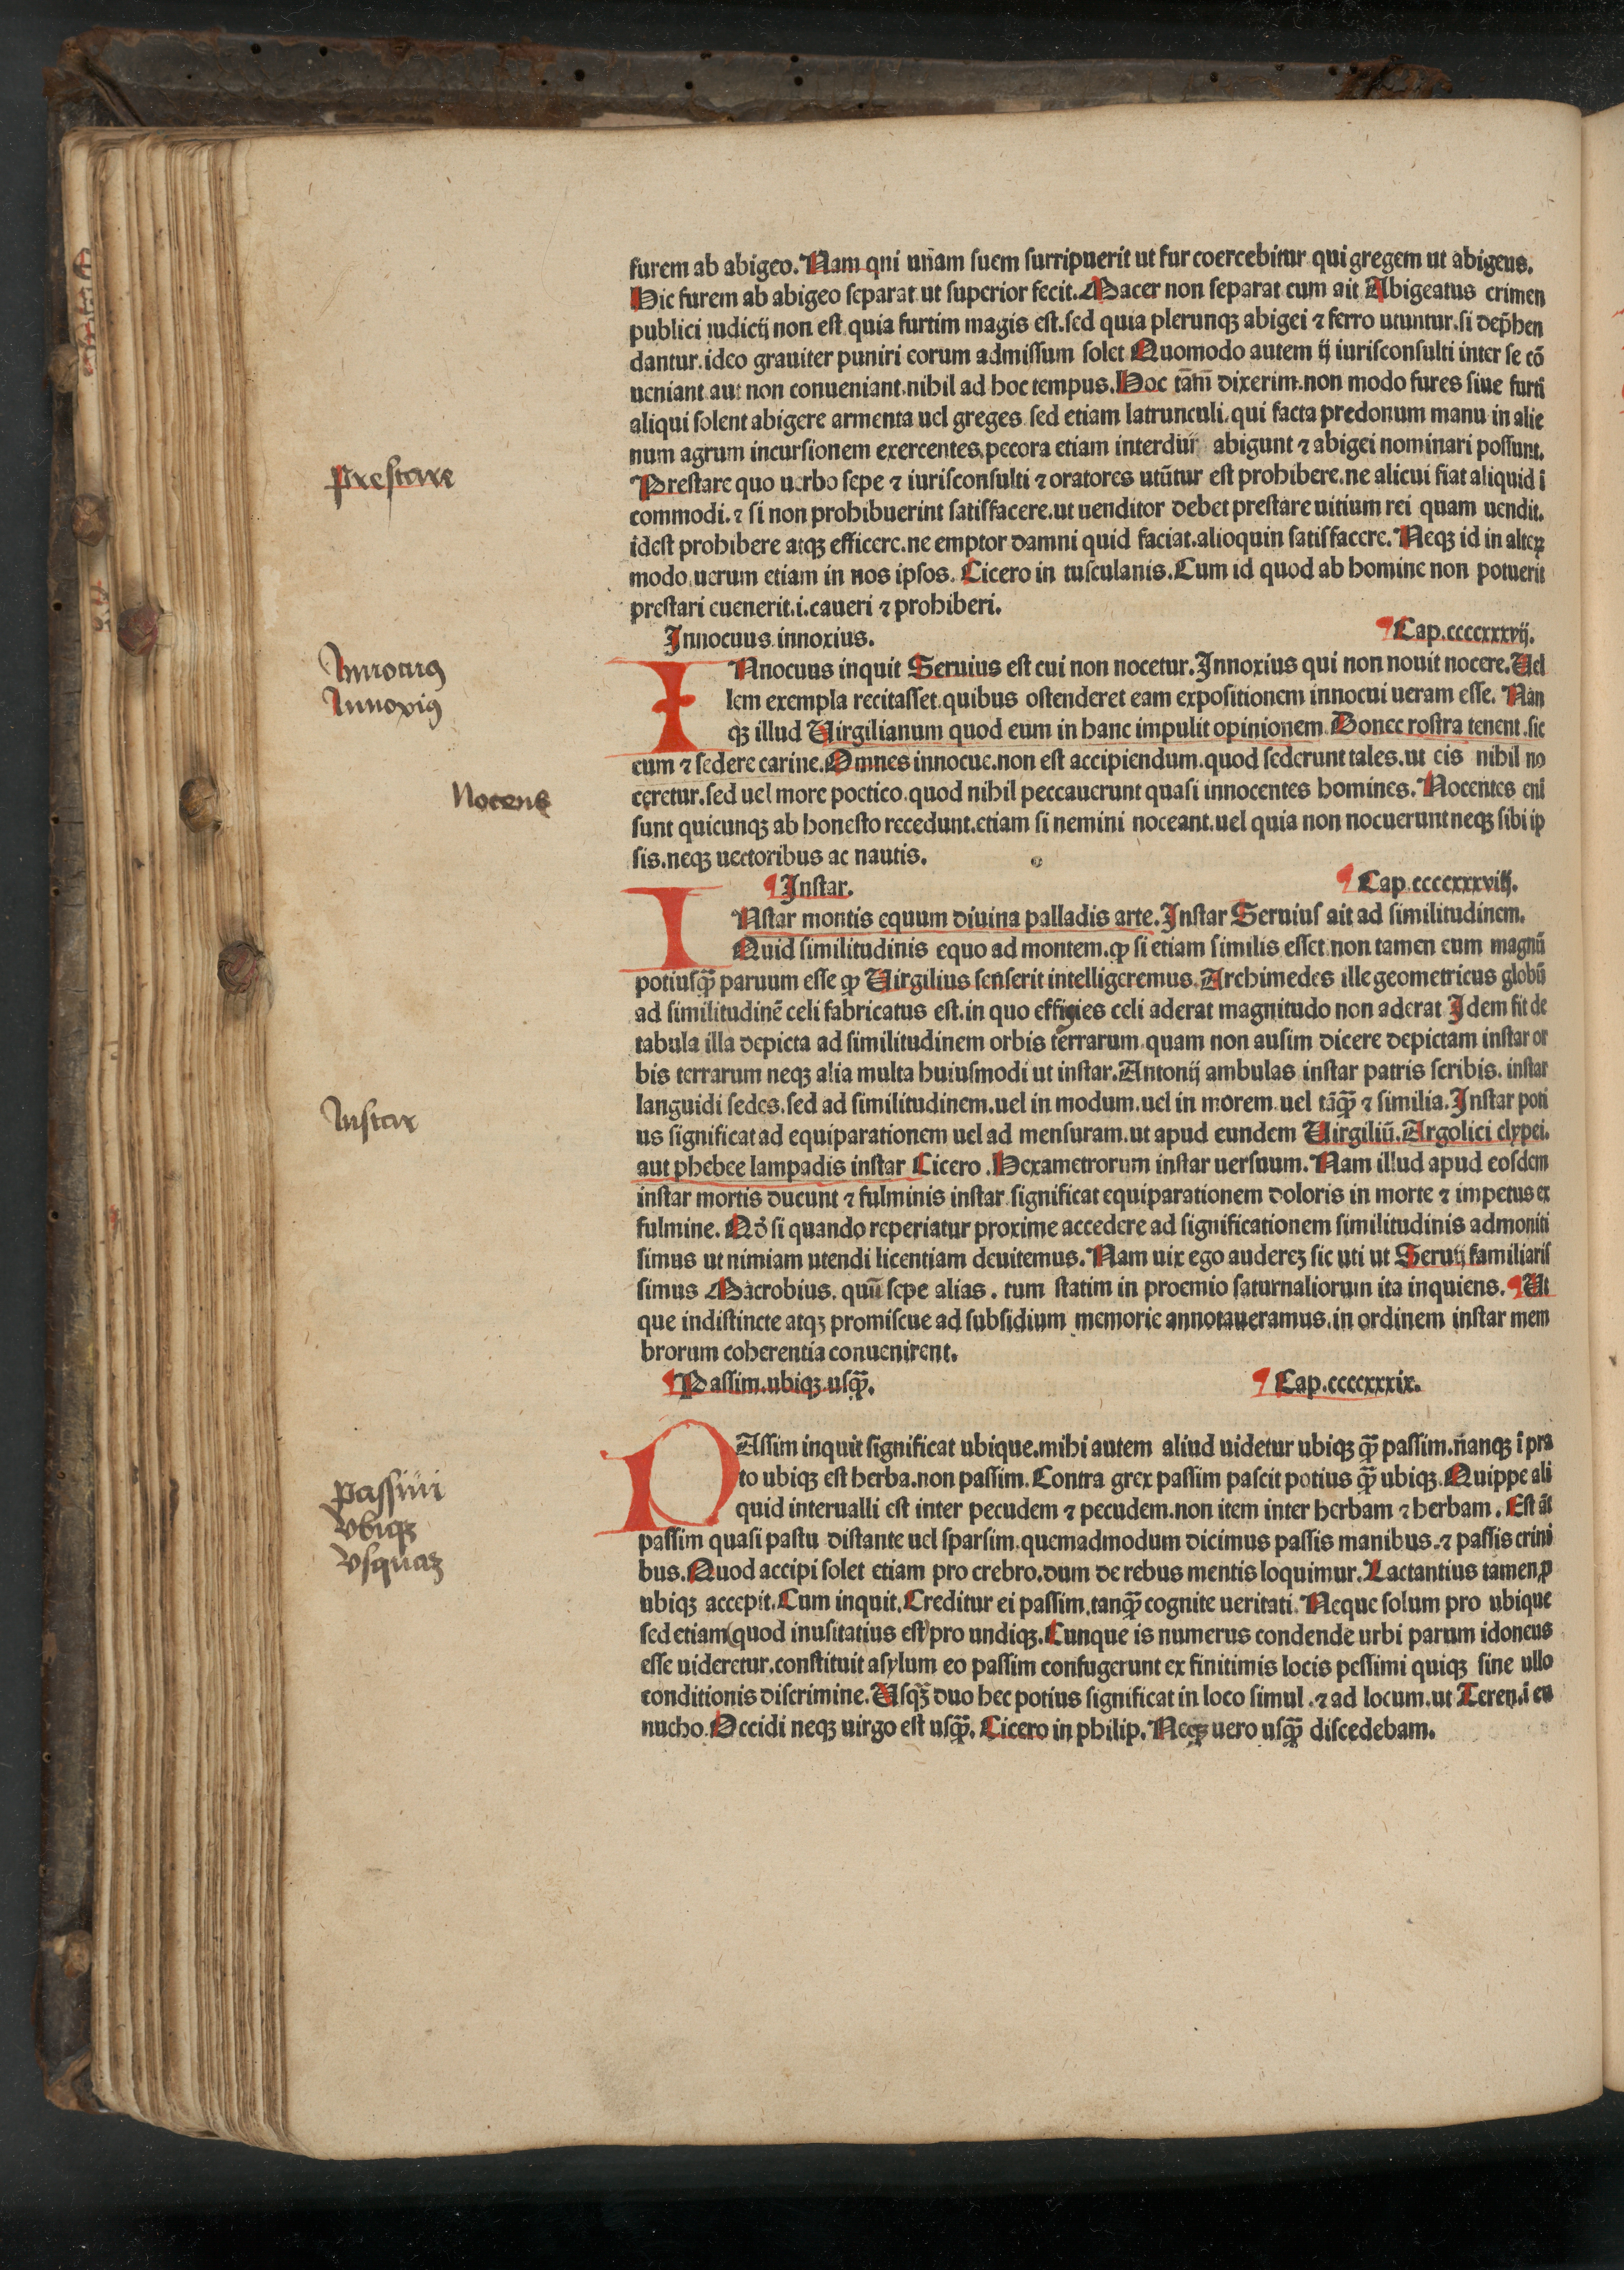 furem ab abigeo. Nam qui unam suem surripuerit ut fur coercebitur qui gregem ut abigeus.
Hic furem ab abigeo separat ut superior fecit. Macer non separat cum ait Abigeatus crimen
publici iudicij non est quia furtim magis est. sed quia plerunqꝫ abigei ⁊ ferro utuntur. si dep̄hen
dantur. ideo grauiter puniri eorum admissum solet Quomodo autem ij iurisconsulti inter se cō
ueniant aut non conueniant. nihil ad hoc tempus. Hoc tātm̄ dixerim. non modo fures siue furti
aliqui solent abigere armenta uel greges sed etiam latrunculi. qui facta predonum manu in alie
num agrum incursionem exercentes, pecora etiam interdiu abigunt ⁊ abigei nominari possunt.
Prestare
Prestare quo uerbo sepe ⁊ iurisconsulti ⁊ oratores utūtur est prohibere. ne alicui fiat aliquid ī
commodi. ⁊ si non prohibuerint satisfacere. ut uenditor debet prestare uitium rei quam uendit.
idest prohibere atqꝫ efficere. ne emptor damni quid faciat. alioquin satisfacere. Neqꝫ id in alteꝝ
modo, uerum etiam in nos ipsos. Cicero in tusculanis. Cum id quod ab homine non potuerit
prestari euenerit. i. caueri ⁊ prohiberi.
Innocuus innoxius. ¶ Cap. ccccxxxvij.
Innocuꝰ
Innoxiꝰ
INnocuus inquit Seruius est cui non nocetur. Innoxius qui non nouit nocere. Uel
lem exempla recitasset. quibus ostenderet eam expositionem innocui ueram esse. Nan
qꝫ illud Uirgilianum quod eum in hanc impulit opinionem. Donec rostra tenent. sic
cum ⁊ sedere carine. Omnes innocue. non est accipiendum. quod sederunt tales. ut eis nihil no
Nocens
ceretur. sed uel more poetico. quod nihil peccauerunt quasi innocentes homines. Nocentes eni
sunt quicunqꝫ ab honesto recedunt. etiam si nemini noceant. uel quia non nocuerunt neqꝫ sibi ip
sis. neqꝫ uectoribus ac nautis.
¶ Instar. ¶ Cap. ccccxxxviij.
INstar montis equum diuina palladis arte. Instar Seruius ait ad similitudinem.
Quid similitudinis equo ad montem. ꝙ si etiam similis esset non tamen eum magnū
potiusꝙ̄ paruum esse ꝙ Uirgilius senserit intelligeremus. Archimedes ille geometricus globū
ad similitudinē celi fabricatus est. in quo effigies celi aderat magnitudo non aderat Idem fit de
tabula illa depicta ad similitudinem orbis terrarum. quam non ausim dicere depictam instar or
bis terrarum neqꝫ alia multa huiusmodi ut instar. Antonij ambulas instar patris scribis. instar
Instar
languidi sedes. sed ad similitudinem. uel in modum. uel in morem uel tāꝙ̄ ⁊ similia. Instar poti
us significat ad equiparationem uel ad mensuram. ut apud eundem Uirgiliū. Argolici clypei.
aut phebee lampadis instar Cicero. Hexametrorum instar uersuum. Nam illud apud eosdem
instar mortis ducunt ⁊ fulminis instar significat equiparationem doloris in morte ⁊ impetus ex
fulmine. Nō si quando reperiatur proxime accedere ad significationem similitudinis admoniti
simus ut nimiam utendi licentiam deuitemus. Nam uix ego audereꝫ sic uti ut Seruij familiaris
simus Macrobius. quū sepe alias. tum statim in proemio saturnaliorum ita inquiens. ¶ Ut
que indistincte atqꝫ promiscue ad subsidium memorie annotaueramus. in ordinem instar mem
brorum coherentia conuenirent.
¶ Passim. ubiqꝫ. usꝙ̄. ¶ Cap. ccccxxxix.
PAssim inquit significat ubique. mihi autem aliud uidetur ubiqꝫ ꝙ̄ passim. nanqꝫ ī pra
Passim
to ubiqꝫ est herba. non passim. Contra grex passim pascit potius ꝙ̄ ubiqꝫ. Quippe ali
Vbiqꝫ
quid interualli est inter pecudem ⁊ pecudem. non item inter herbam ⁊ herbam. Est āt
Vsquaꝫ
passim quasi pastu distante uel sparsim. quemadmodum dicimus passis manibus. ⁊ passis crini
bus. Quod accipi solet etiam pro crebro. dum de rebus mentis loquimur. Lactantius tamen, p
ubiqꝫ accepit. Cum inquit. Creditur ei passim. tanꝙ̄ cognite ueritati. Neque solum pro ubique
sed etiam (quod inusitatius est) pro undiqꝫ. Cunque is numerus condende urbi parum idoneus
esse uideretur. constituit asylum eo passim confugerunt ex finitimis locis pessimi quiqꝫ sine ullo
conditionis discrimine. Usqꝫ̄ duo hec potius significat in loco simul. ⁊ ad locum. ut Teren. ī eu
nucho. Occidi neqꝫ uirgo est usꝙ̄. Cicero in philip. Neqꝫ uero usꝙ̄ discedebam.